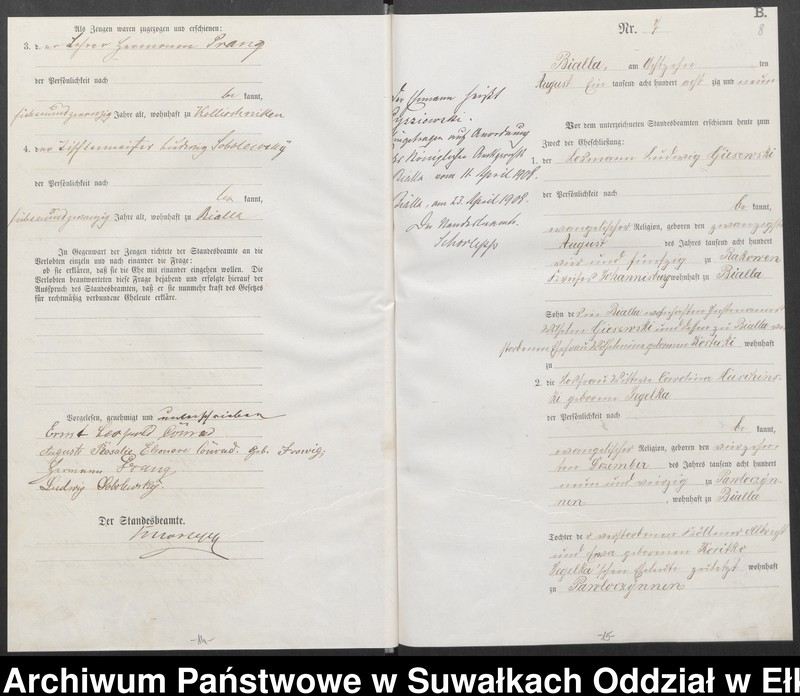 Als Zeugen waren zugezogen und erschienen:
3. der Lehrer Hermann Prang
der Persönlichkeit nach
be kannt,
siebenundzwanzig Jahre alt, wohnhaft zu
4. der Tischlermeister Ludwig Sobolewsky
der Persönlichkeit nach
be kannt,
siebenundzwanzig Jahre alt, wohnhaft zu Bialla
In Gegenwart der Zeugen richtete der Standesbeamte an die
Verlobten einzeln und nach einander die Frage:
ob sie erklären, daß sie die Ehe mit einander eingehen wollen. Die
Verlobten beantworteten diese Frage bejahend und erfolgte hierauf der
Ausspruch des Standesbeamten, daß er sie nunmehr kraft des Gesetzes
für rechtmäßig verbundene Eheleute erkläre.
Vorgelesen, genehmigt und unterschrieben
Ernst Leopold Conrad
Auguste Rosalie Eleonore Conrad. geb.
Hermann Prang
Ludwig Sobolewsky
Der Standesbeamte.
-14-
Der Ehemann heißt
Eingetragen auf Anordnung
des Königlichen Amtsgerichts
Bialla vom 11. April 1908.
Bialla, am 23. April 1908.
Der Standesbeamte.
B.
8
Nr. 7
Bialla, am Achtzehn ten
August Ein tausend acht hundert acht zig und neun
Vor dem unterzeichneten Standesbeamten erschienen heute zum
Zweck der Eheschließung:
1. der Losmann Ludwig Giesewski
der Persönlichkeit nach
be kannt,
evangelischer Religion, geboren den zwanzigsten
August des Jahres tausend acht hundert
vier und fünfzig zu Rakowen
Kreises Johannisburg wohnhaft zu Bialla
Sohn des in Bialla wohnhaften
Wilhelm Giesewski und dessen zu Bialla ver
storbenen Ehefrau Wilhelmine geborenen wohnhaft
zu
2. die Losfrau Wittwe Carolina
geborene Jegelka
der Persönlichkeit nach
be kannt,
evangelischer Religion, geboren den vierzehn
ten Dezember des Jahres tausend acht hundert
neun und vierzig zu Pawloczyn
nen, wohnhaft zu Bialla
Tochter der verstorbenen Kölltner Albrecht
und Ewa geborenen Koritko
Jegelka'schen Eheleute zuletzt wohnhaft
zu Pawloczynnen
-15-
Archiwum Państwowe w Suwałkach Oddział w Eł